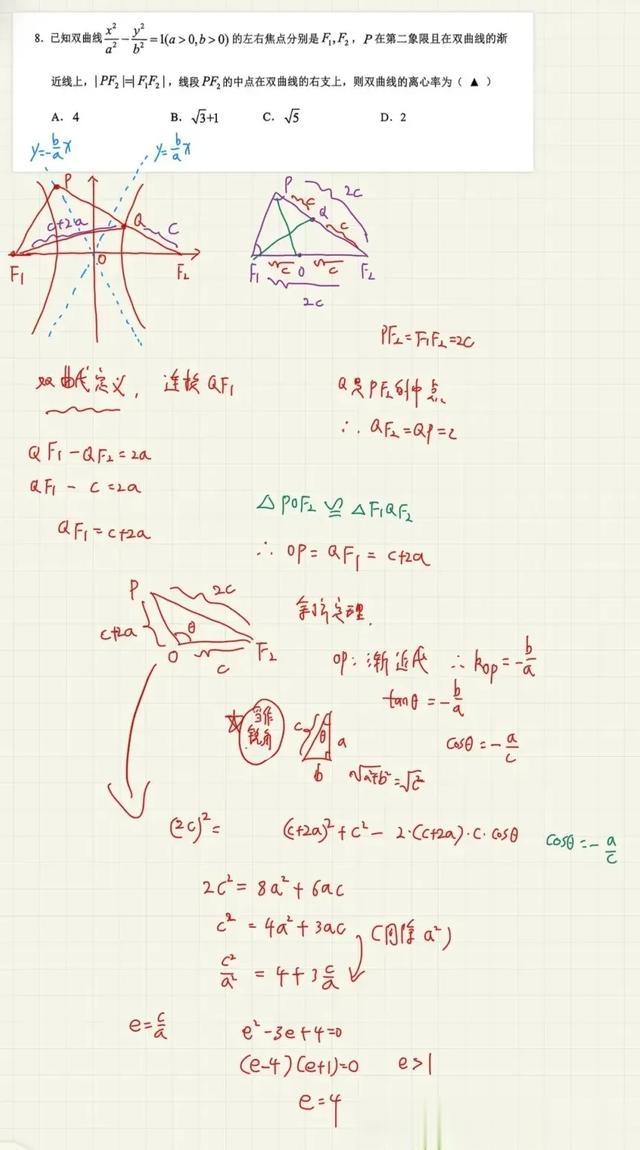 8. 已知双曲线x²/a² - y²/b² = 1(a > 0, b > 0) 的左右焦点分别是 F₁, F₂, P 在第二象限且在双曲线的渐
近线上, |PF₂|=|F₁F₂|, 线段 PF₂ 的中点在双曲线的右支上, 则双曲线的离心率为 ( ▲ )
A. 4 B. √3+1 C. √5 D. 2
y=-b/a x
y=b/a x
P
c+2a
Q
C
F₁
O
F₂
P
2c
c
Q
c
F₁
c
O
c
F₂
2c
PF₂=F₁F₂=2c
双曲线定义, 连接 QF₁
Q是PF₂的中点
∴ QF₂=QP=c
QF₁-QF₂=2a
QF₁-c=2a
QF₁=c+2a
△POF₂ ≌ △F₁QF₂
∴ OP=QF₁=c+2a
P
2c
c+2a
θ
O
c
F₂
余弦定理.
OP: 渐近线 ∴ kOP=-b/a
tanθ=-b/a
当作
锐角
c
θ
a
b
√a²+b²=√c²
cosθ=-a/c
(2c)²= (c+2a)²+c²-2·(c+2a)·c·cosθ
cosθ=-a/c
2c²=8a²+6ac
c²=4a²+3ac
(同除a²)
c²/a²=4+3c/a
e=c/a
e²-3e+4=0
(e-4)(e+1)=0 e>1
e=4